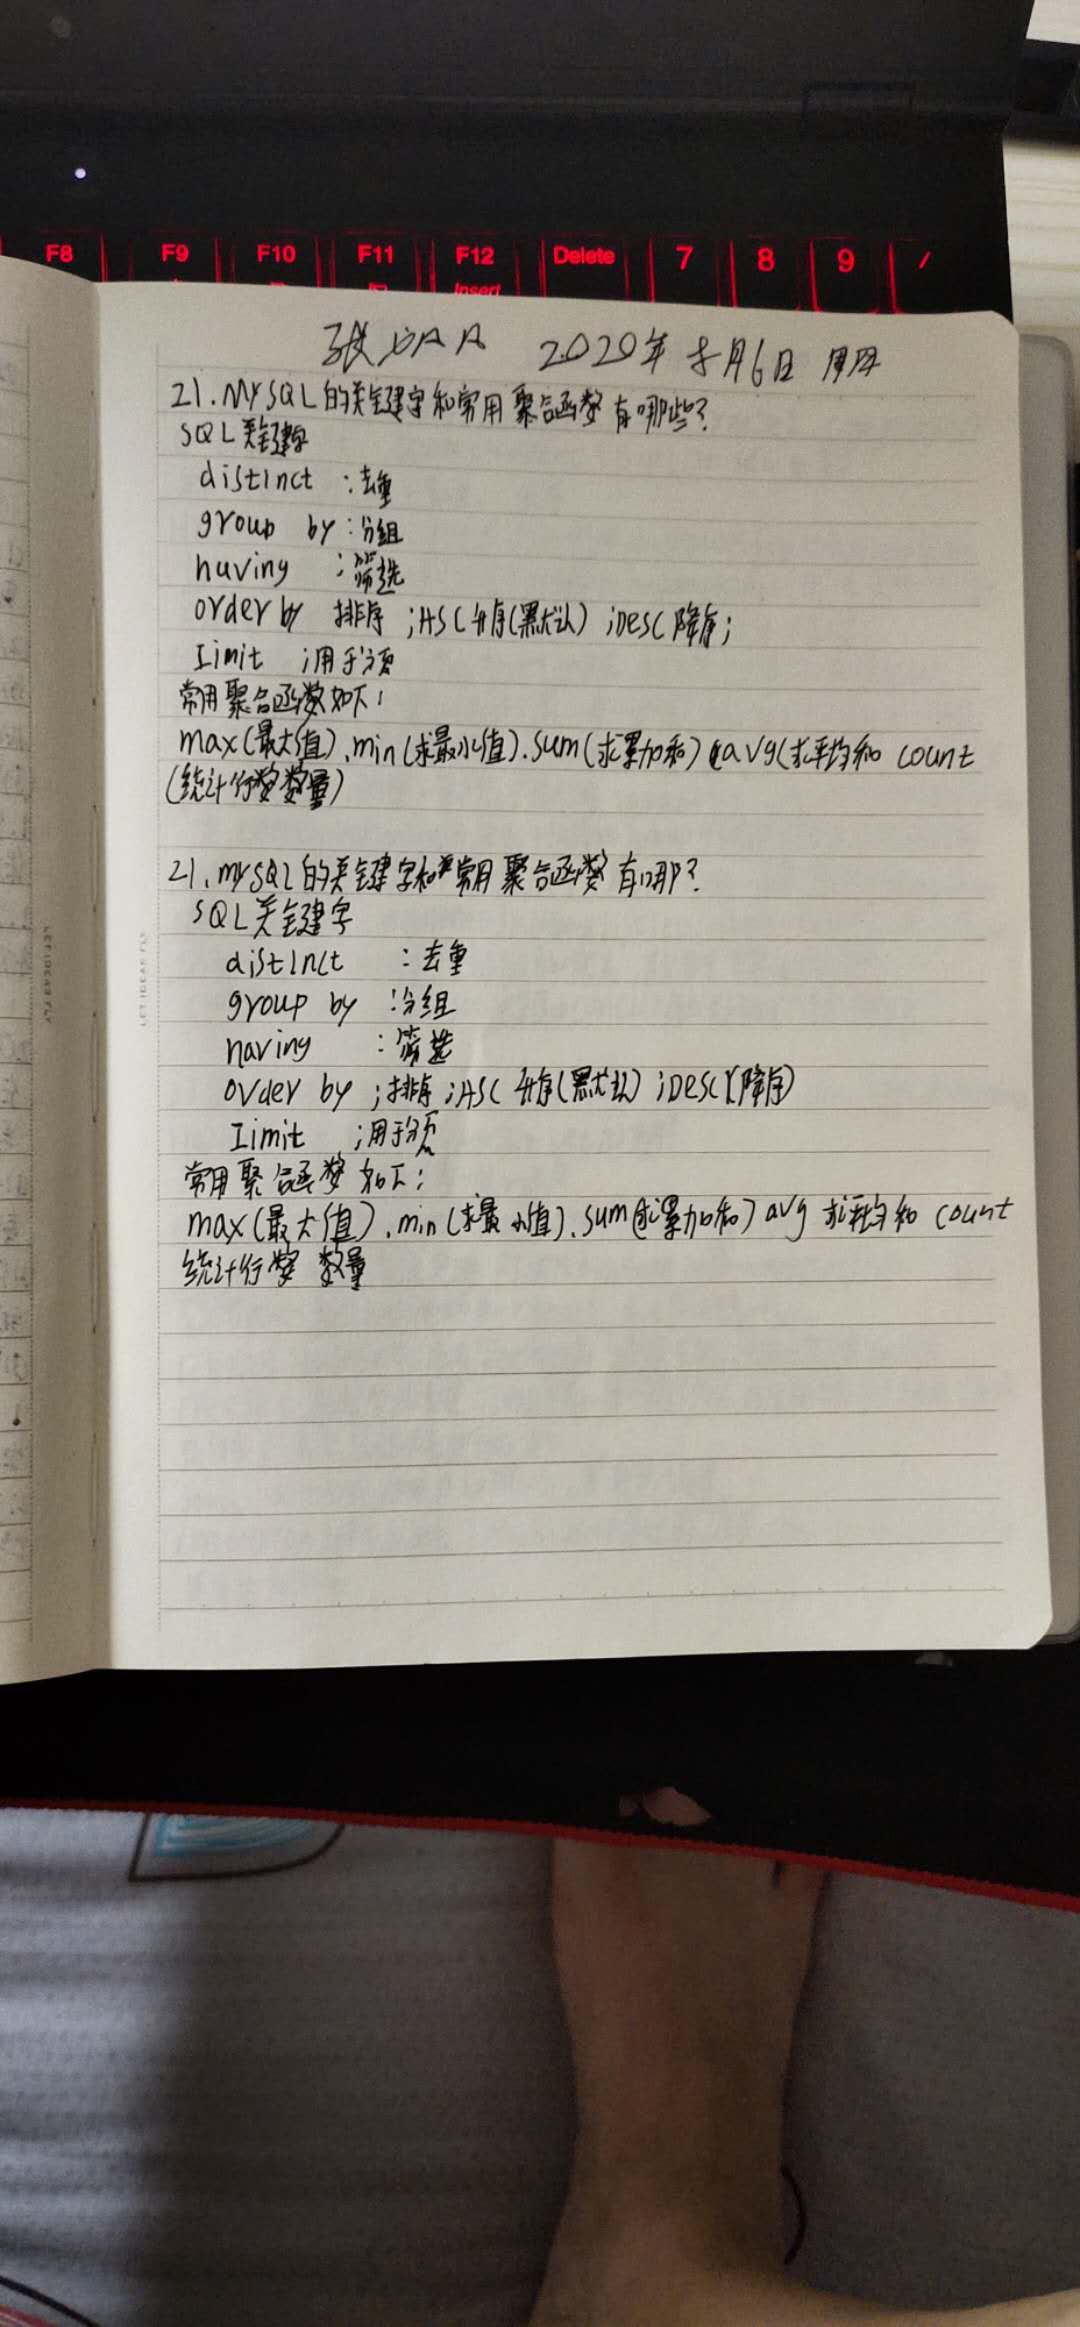 F8 F9 F10 F11 F12 Delete 7 8 9 /
Insert
张 2020年8月6日
21.MySQL的关键字和常用聚合函数有哪些?
SQL关键字
distinct :去重
group by :分组
having :筛选
order by 排序 ;ASC 升序(默认) ;DESC 降序;
Limit ;用于分页
常用聚合函数如下:
max(最大值).min(求最小值).sum(求累加和) avg(求平均和 count
(统计行数数量)
21.mysql的关键字和常用聚合函数有哪?
SQL关键字
distinct :去重
group by :分组
having :筛选
order by ;排序 ;ASC 升序(默认) ;DESC(降序)
Limit ;用于分页
常用聚合函数 如下;
max(最大值).min(求最小值).sum(求累加和) avg 求平均和 count
统计行数 数量
LET IDEAS FLY
LET IDEAS FLY